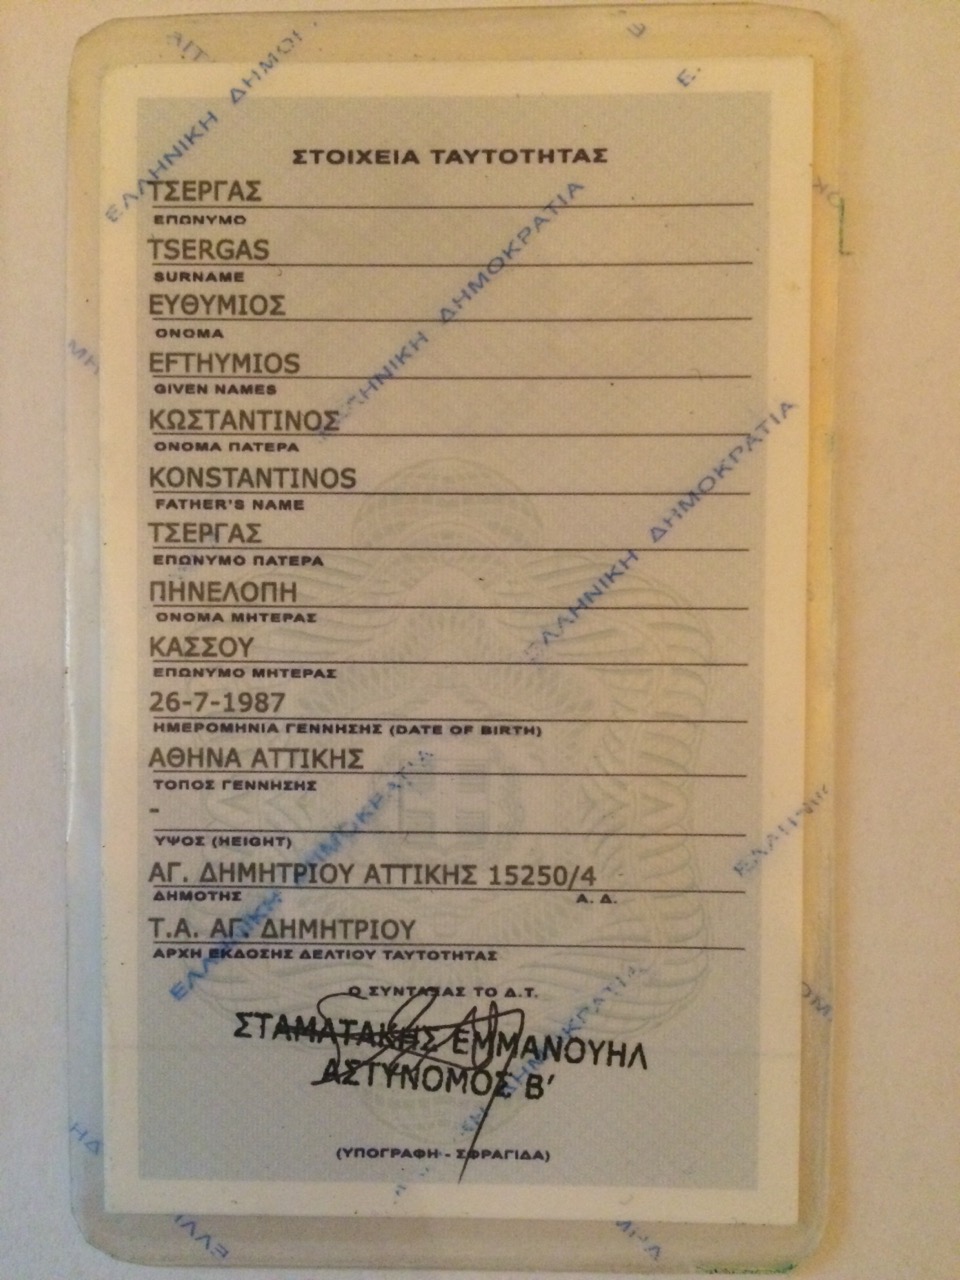 ΣΤΟΙΧΕΙΑ ΤΑΥΤΟΤΗΤΑΣ
ΤΣΕΡΓΑΣ
ΕΠΩΝΥΜΟ
TSERGAS
SURNAME
ΕΥΘΥΜΙΟΣ
ΟΝΟΜΑ
EFTHYMIOS
GIVEN NAMES
ΚΩΣΤΑΝΤΙΝΟΣ
ΟΝΟΜΑ ΠΑΤΕΡΑ
KONSTANTINOS
FATHER'S NAME
ΤΣΕΡΓΑΣ
ΕΠΩΝΥΜΟ ΠΑΤΕΡΑ
ΠΗΝΕΛΟΠΗ
ΟΝΟΜΑ ΜΗΤΕΡΑΣ
ΚΑΣΣΟΥ
ΕΠΩΝΥΜΟ ΜΗΤΕΡΑΣ
26-7-1987
ΗΜΕΡΟΜΗΝΙΑ ΓΕΝΝΗΣΗΣ (DATE OF BIRTH)
ΑΘΗΝΑ ΑΤΤΙΚΗΣ
ΤΟΠΟΣ ΓΕΝΝΗΣΗΣ
-
ΥΨΟΣ (HEIGHT)
ΑΓ. ΔΗΜΗΤΡΙΟΥ ΑΤΤΙΚΗΣ 15250/4
ΔΗΜΟΤΗΣ Α. Δ.
Τ.Α. ΑΓ. ΔΗΜΗΤΡΙΟΥ
ΑΡΧΗ ΕΚΔΟΣΗΣ ΔΕΛΤΙΟΥ ΤΑΥΤΟΤΗΤΑΣ
Ο ΣΥΝΤΑΞΑΣ ΤΟ Δ.Τ.
ΣΤΑΜΑΤΑΚΗΣ ΕΜΜΑΝΟΥΗΛ
ΑΣΤΥΝΟΜΟΣ Β΄
(ΥΠΟΓΡΑΦΗ - ΣΦΡΑΓΙΔΑ)
ΕΛΛΗΝΙΚΗ ΔΗΜΟΚΡΑΤΙΑ
ΕΛΛΗΝΙΚΗ ΔΗΜΟΚΡΑΤΙΑ
ΕΛΛΗΝΙΚΗ ΔΗΜΟΚΡΑΤΙΑ